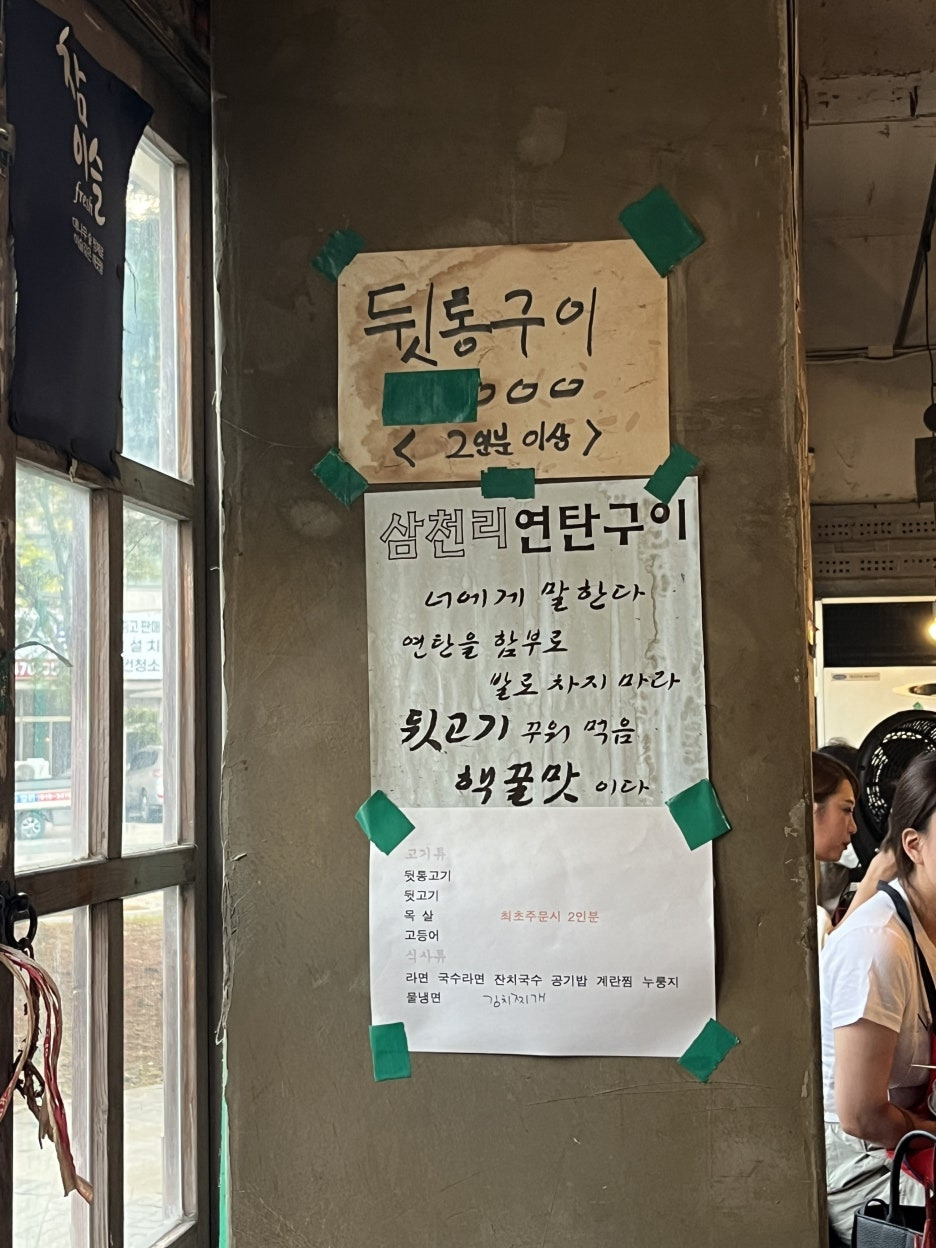 참
이슬
fresh
뒷통구이
000
< 2인분 이상 >
삼천리연탄구이
너에게 말한다
연탄을 함부로
발로 차지 마라
뒷고기 꾸워 먹음
핵꿀맛 이다
고기류
뒷통고기
뒷고기
목 살
최초주문시 2인분
고등어
식사류
라면 국수라면 잔치국수 공기밥 계란찜 누룽지
물냉면 김치찌개
판매
설 치
청소